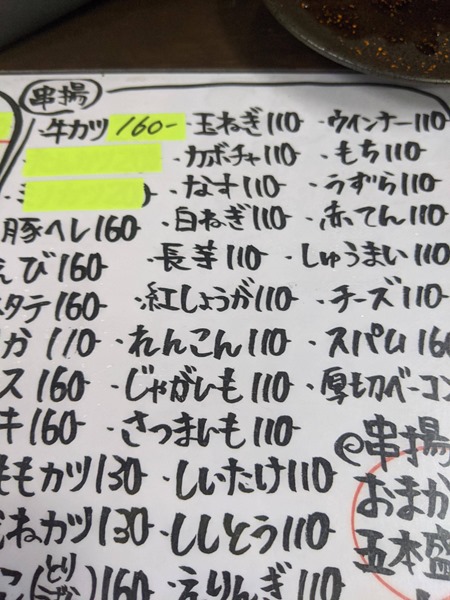 串揚
牛カツ 160-
豚ヘレ 160
えび 160
タテ 160
ガ 110
ス 160
キ 160
ももカツ 130
ねカツ 130
(とり) 160
・玉ねぎ 110
・カボチャ 110
・なす 110
・白ねぎ 110
・長芋 110
・紅しょうが 110
・れんこん 110
・じゃがいも 110
・さつまいも 110
・しいたけ 110
・ししとう 110
・えりんぎ 110
・ウインナー 110
・もち 110
・うずら 110
・赤てん 110
・しゅうまい 110
・チーズ 110
・スパム 160
・厚切ベーコン
@串揚
おまか
五本盛